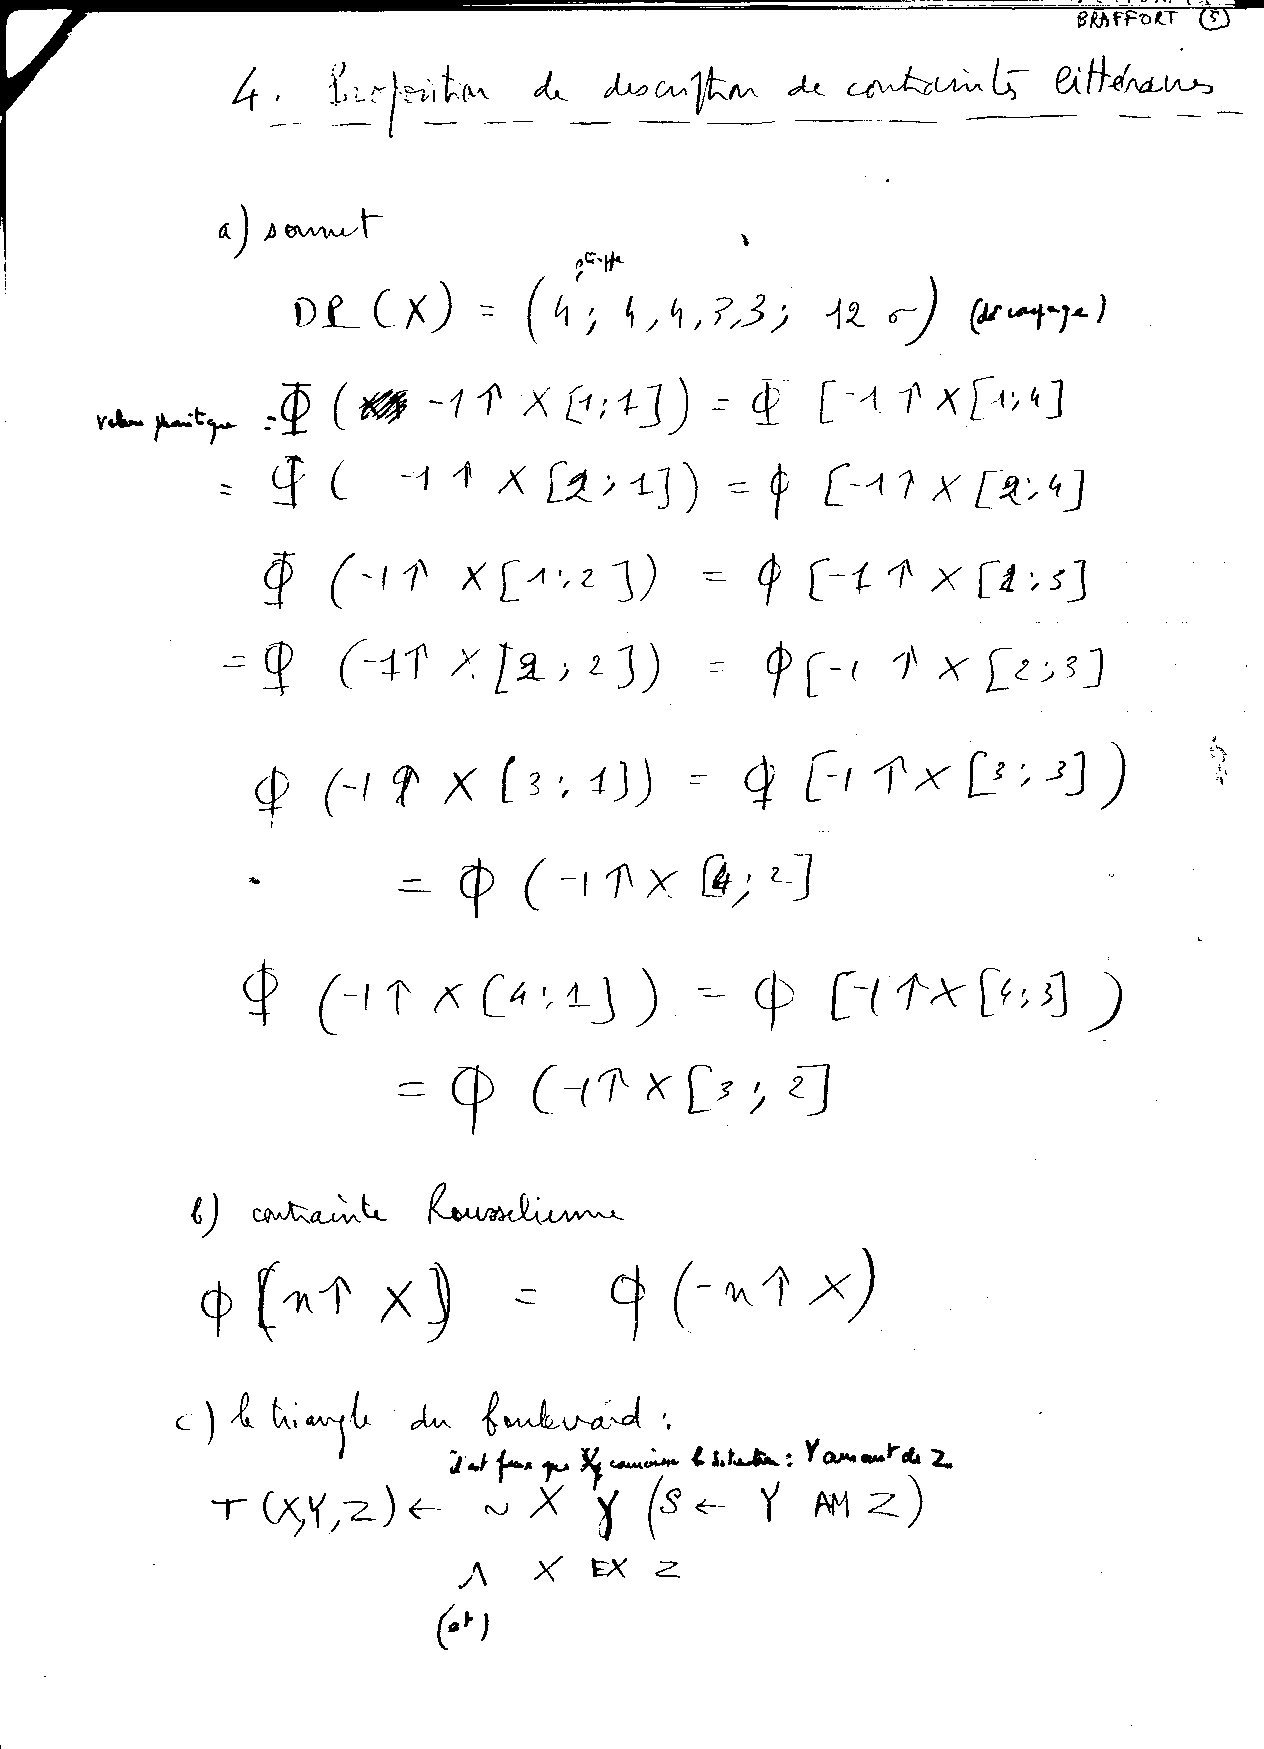 BRAFFORT (5)
4. Proposition de description de contraintes littéraires
a) sonnet
DP (X) = (4; 4,4,3,3; 12 σ) (découpage)
valeur phonétique = Φ ( -1↑ X [1;1]) = Φ [-1↑X[1;4]
= Φ ( -1↑ X [2;1]) = Φ [-1↑ X [2;4]
Φ (-1↑ X[1;2]) = Φ [-1↑ X [1;3]
= Φ (-1↑ X [2;2]) = Φ[-1 ↑ X [2;3]
Φ (-1↑ X [3;1]) = Φ [-1↑X [3;3])
= Φ (-1↑X [4;2]
Φ (-1↑ X [4;1]) = Φ [-1↑X [4;3])
= Φ (-1↑X [3;2]
b) contrainte Rousselienne
Φ [n↑ X] = Φ (-n↑ X)
c) le triangle du boulevard :
il est faux que X connaisse la situation : Y amant de Z
T (X,Y,Z) ← ~ X γ (S ← Y AM Z)
∧ X EX Z
(et)